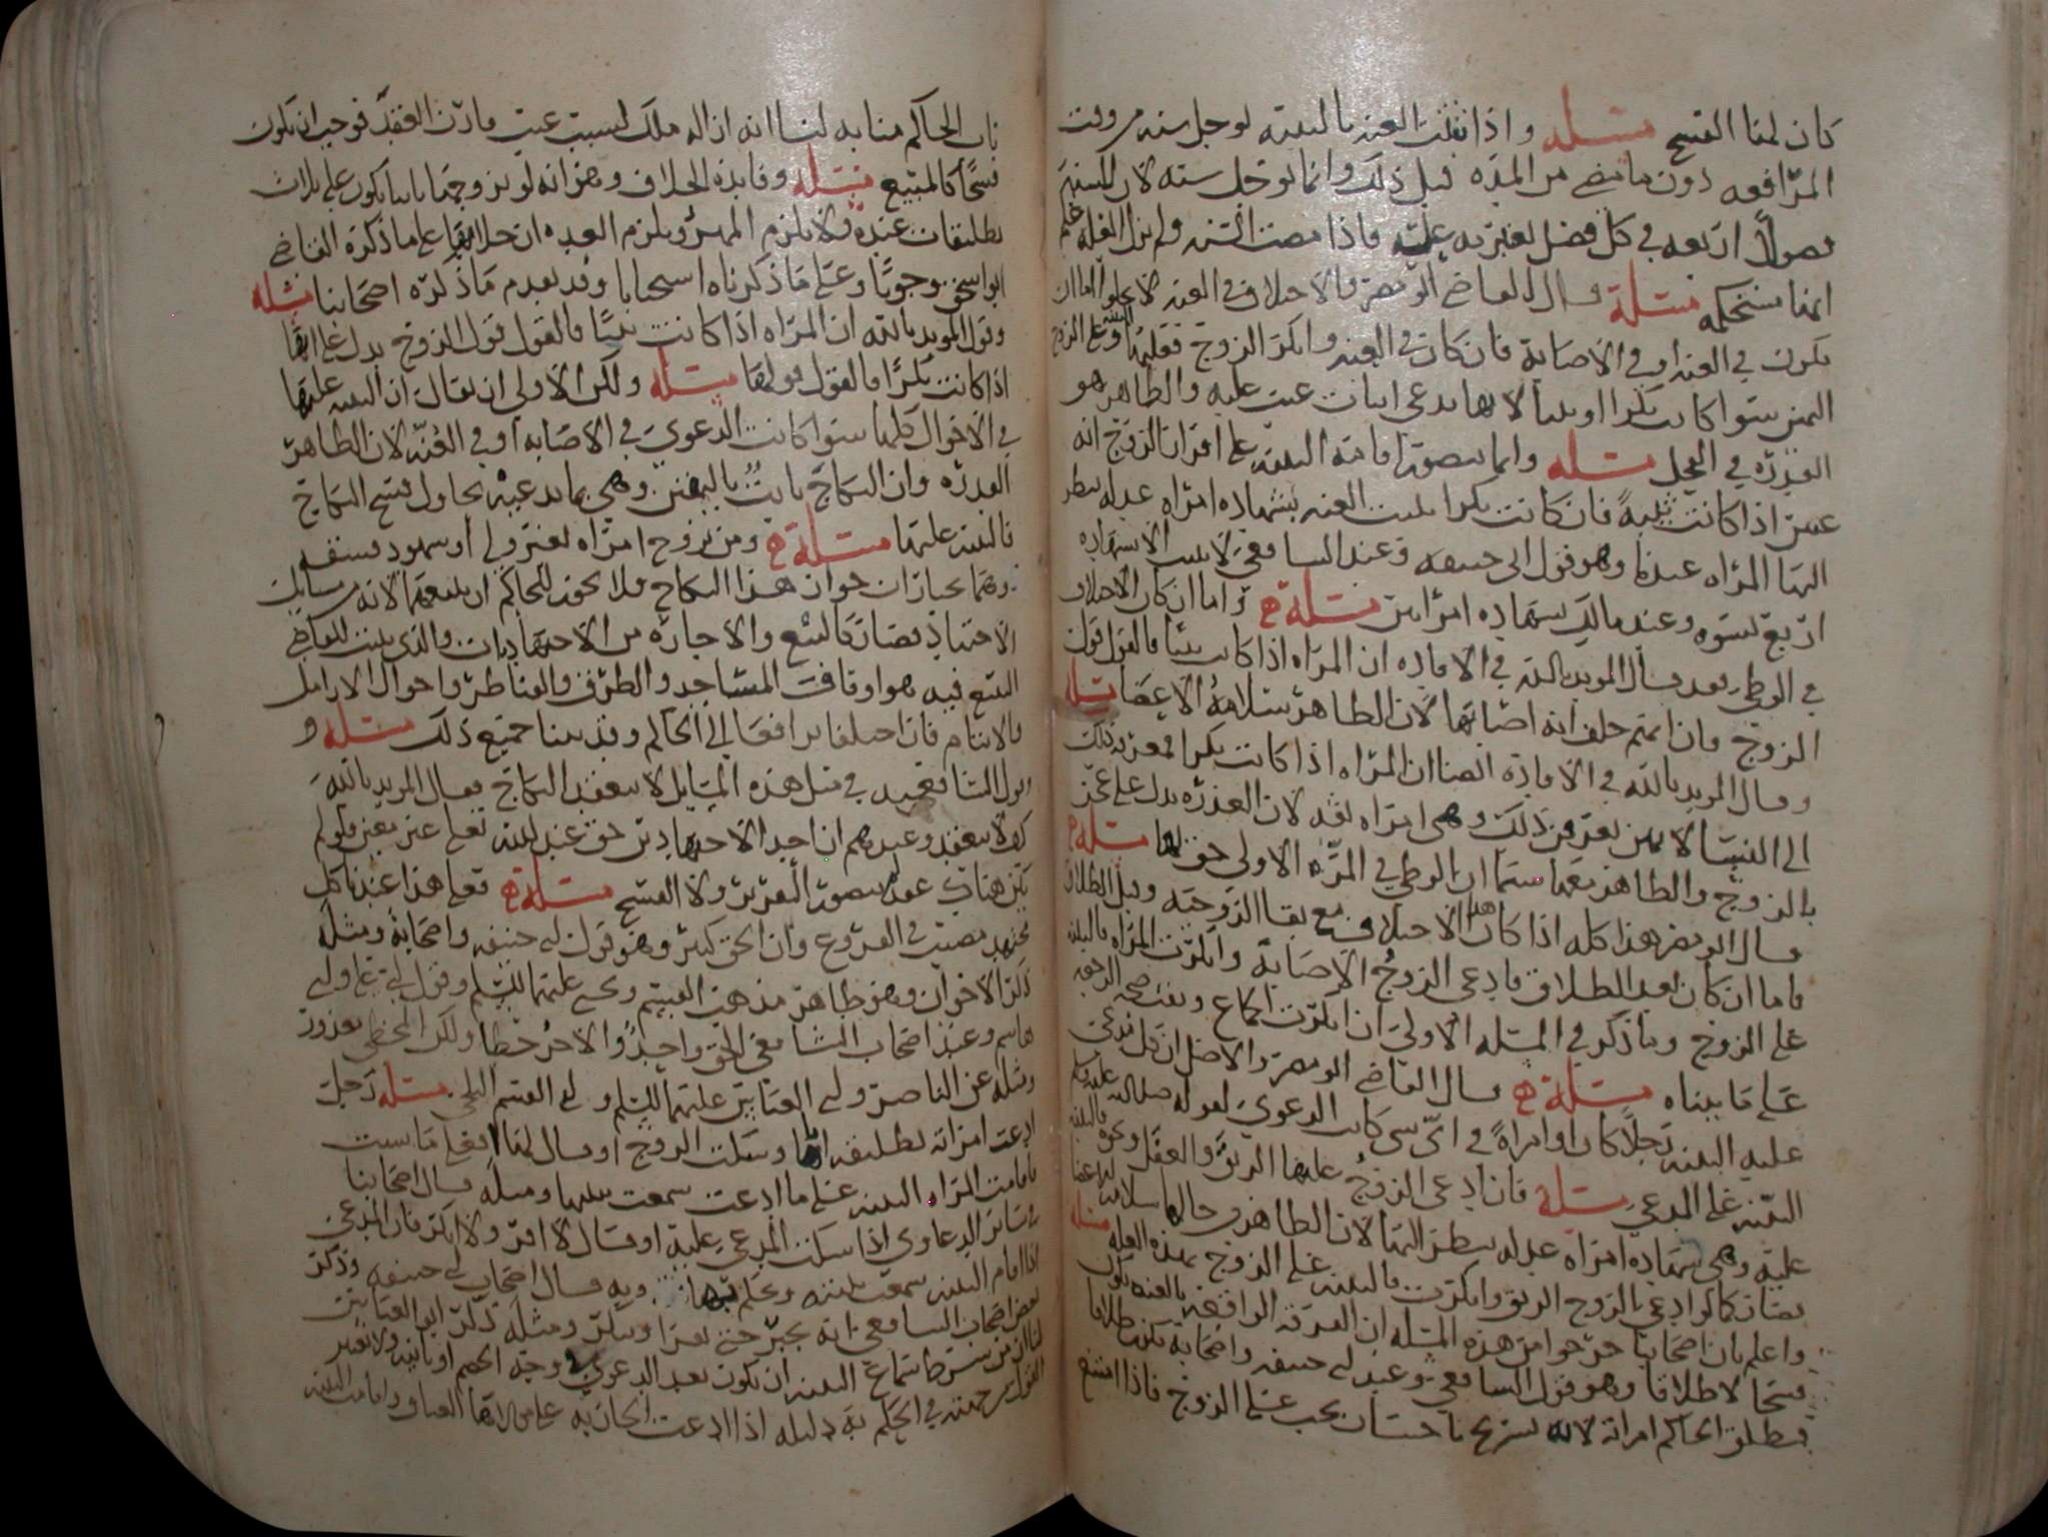 كان لها الفسخ مسئلة واذا ثبتت العنه بالبينه يوجل سنه من وقت
المرافعه دون ما مضى من المده قبل ذلك وانما يوجل سنه لان للسنه
فصولا اربعه في كل فصل يعتريه علته فاذا مضت السنه ولم تزل العله علم
انها مستحكمه مسئلة قال القاضي ابو مضر والاختلاف في العنه لا يخلو اما ان
يكون في العنه او في الاصابة فان كان في العنه وانكر الزوج فعليها البينه وعلى الزوج
اليمين سوا كانت بكرا او ثيبا لانها تدعي اثبات عيب عليه والظاهر هو
القدره في الفحل مسئله وانما يتصور اقامة البينه على اقرار الزوج انه
عنين اذا كانت ثيبة فان كانت بكرا يثبت العنه بشهاده امراه عدله ينظر
اليها المراه عندنا وهو قول ابي حنيفه وعند الشافعي لا يثبت الا بشهاده
اربع نسوه وعند مالك بشهاده امراتين مسئلة واما ان كان الاختلاف
في الوطي فقد قال المويد بالله في الافاده ان المراه اذا كانت ثيبا فالقول قول
الزوج فان اتهم حلف انه اصابها لان الظاهر سلامة الاعضا مسئله
وقال المويد بالله في الافادة ايضا ان المراه اذا كانت بكرا فمعرفة ذلك
الى النسا لا بمن يعرفن ذلك وهي امراه لان العذره يدل على عجز
بالزوج والظاهر معها سيما ان الوطي في المره الاولى حق لها مسئلة
قال ابو مضر هذا كله اذا كان هذا الاختلاف مع بقا الزوجيه وقبل الطلاق
فاما ان كان بعد الطلاق فادعى الزوج الاصابة وانكرت المراه فالبينه
على الزوج وما ذكر في المسئله الاولى ان انكرت الجماع وبعث صحه الرجعه
على ما بيناه مسئلة قال القاضي ابو مضر والاصل ان كل مدعي
عليه البينه رجلا كان او امراة في اي شي كانت الدعوى لقوله صلى الله عليه وسلم
البينه على المدعي مسئلة فان ادعى الزوج عليها الرتق والعفل ونحوه فالبينه
عليه وهي شهاده امراة عدله ينظر اليها لان الظاهر من حالها سلامة
فصار كما لو ادعي بالزوج الرتق وانكرت فالبينه على الزوج بهذه العله مسئله
واعلم بان اصحابنا خرجوا من هذه المسئله ان الفرقه الواقعه بالعنه تكون
فسخا لا طلاقا وهو قول الشافعي وعند ابي حنيفه واصحابه يكون طلاقا
فيطلق الحاكم امراته لانه تسريح باحسان يجب على الزوج فاذا امتنع
ناب الحاكم منابه لنا انه ازاله ملك لسبب عيب قارن العقد فوجب ان يكون
فسخا كالمبيع مسئله وفايدة الخلاف وهو انه لو تزوجها ثانيا يكون على ثلاث
تطليقات عنده ولا يلزم المهر ويلزم العده ان خلا بها على ما ذكره القاضي
ابو اسحق وجوبا وعلى ما ذكرناه استحبابا وقد تقدم ما ذكره اصحابنا مسئله
وقول المويد بالله ان المراه اذا كانت ثيبا فالقول قول الزوج يدل على انها
اذا كانت بكرا فالقول قولها مسئله ولكن الاولى ان يقال ان البينه عليها
في الاحوال كلها سوا كانت الدعوى في الاصابه او في العنه لان الظاهر
القدره وان النكاح ثابت باليقين وهي بما تدعيه تحاول فسخ النكاح
فالبينه عليها مسئلة ومن تزوج امراه بغير ولي او شهود فسقه
وهما يختاران جواز هذا النكاح فلا يجوز للحاكم ان يمنعهما لانه من مسايل
الاجتهاد فصار كالبيع والاجاره من الاجتهاديات والذي يثبت للقاضي
التبع فيه هو اوقاف المساجد والطرق والقناطر واحوال الارامل
والايتام فان اختلفا ترافعا الى الحاكم وقد بينا جميع ذلك مسئله و
قول الشافعي في مثل هذه المسايل لا ينعقد النكاح فقال المويد بالله
كولا ينعقد وعندهم ان احد الاجتهادين حق عند الله تعالى غير معين فلو لم
يكن هناك عقد لا يتصور التقرير ولا الفسخ مسئلة فعلى هذا عندنا كل
مجتهد مصيب في الفروع وان الحق كثير وهو قول ابي حنيفه واصحابه ومثله
ذكر الاخوان وهو ظاهر مذهب القسم ويحيى عليهما السلم وقول ابي علي وابي
هاشم وعند اصحاب الشافعي الحق واحد والاخر خطا ولكن المخطي معذور
ومثله عن الناصر وابي العباس عليهما السلم وابي القسم البلخي مسئله رجل
ادعت امراته تطليقه اياها وسكت الزوج او قال لها افعلى ما شيت
فاقامت المراه البينه على ما ادعت سمعت بينتها ومثله قال اصحابنا
في ساير الدعاوي اذا سكت المدعى عليه او قال لا اقر ولا انكر فان المدعي
اذا اقام البينه سمعت بينته وحكم بها وبه قال اصحاب ابي حنيفه وذكر
بعض اصحاب الشافعي انه يجبر حتى يقر او ينكر ومثله ذكر ابو العباس
لنا ان من شرط استماع البينه ان تكون بعد الدعوى في وجه الخصم او نايبه ولا يعتبر
القول من جهته في الحكم به دليله اذا ادعت الجاريه على مولاها العتاق واقامت البينه